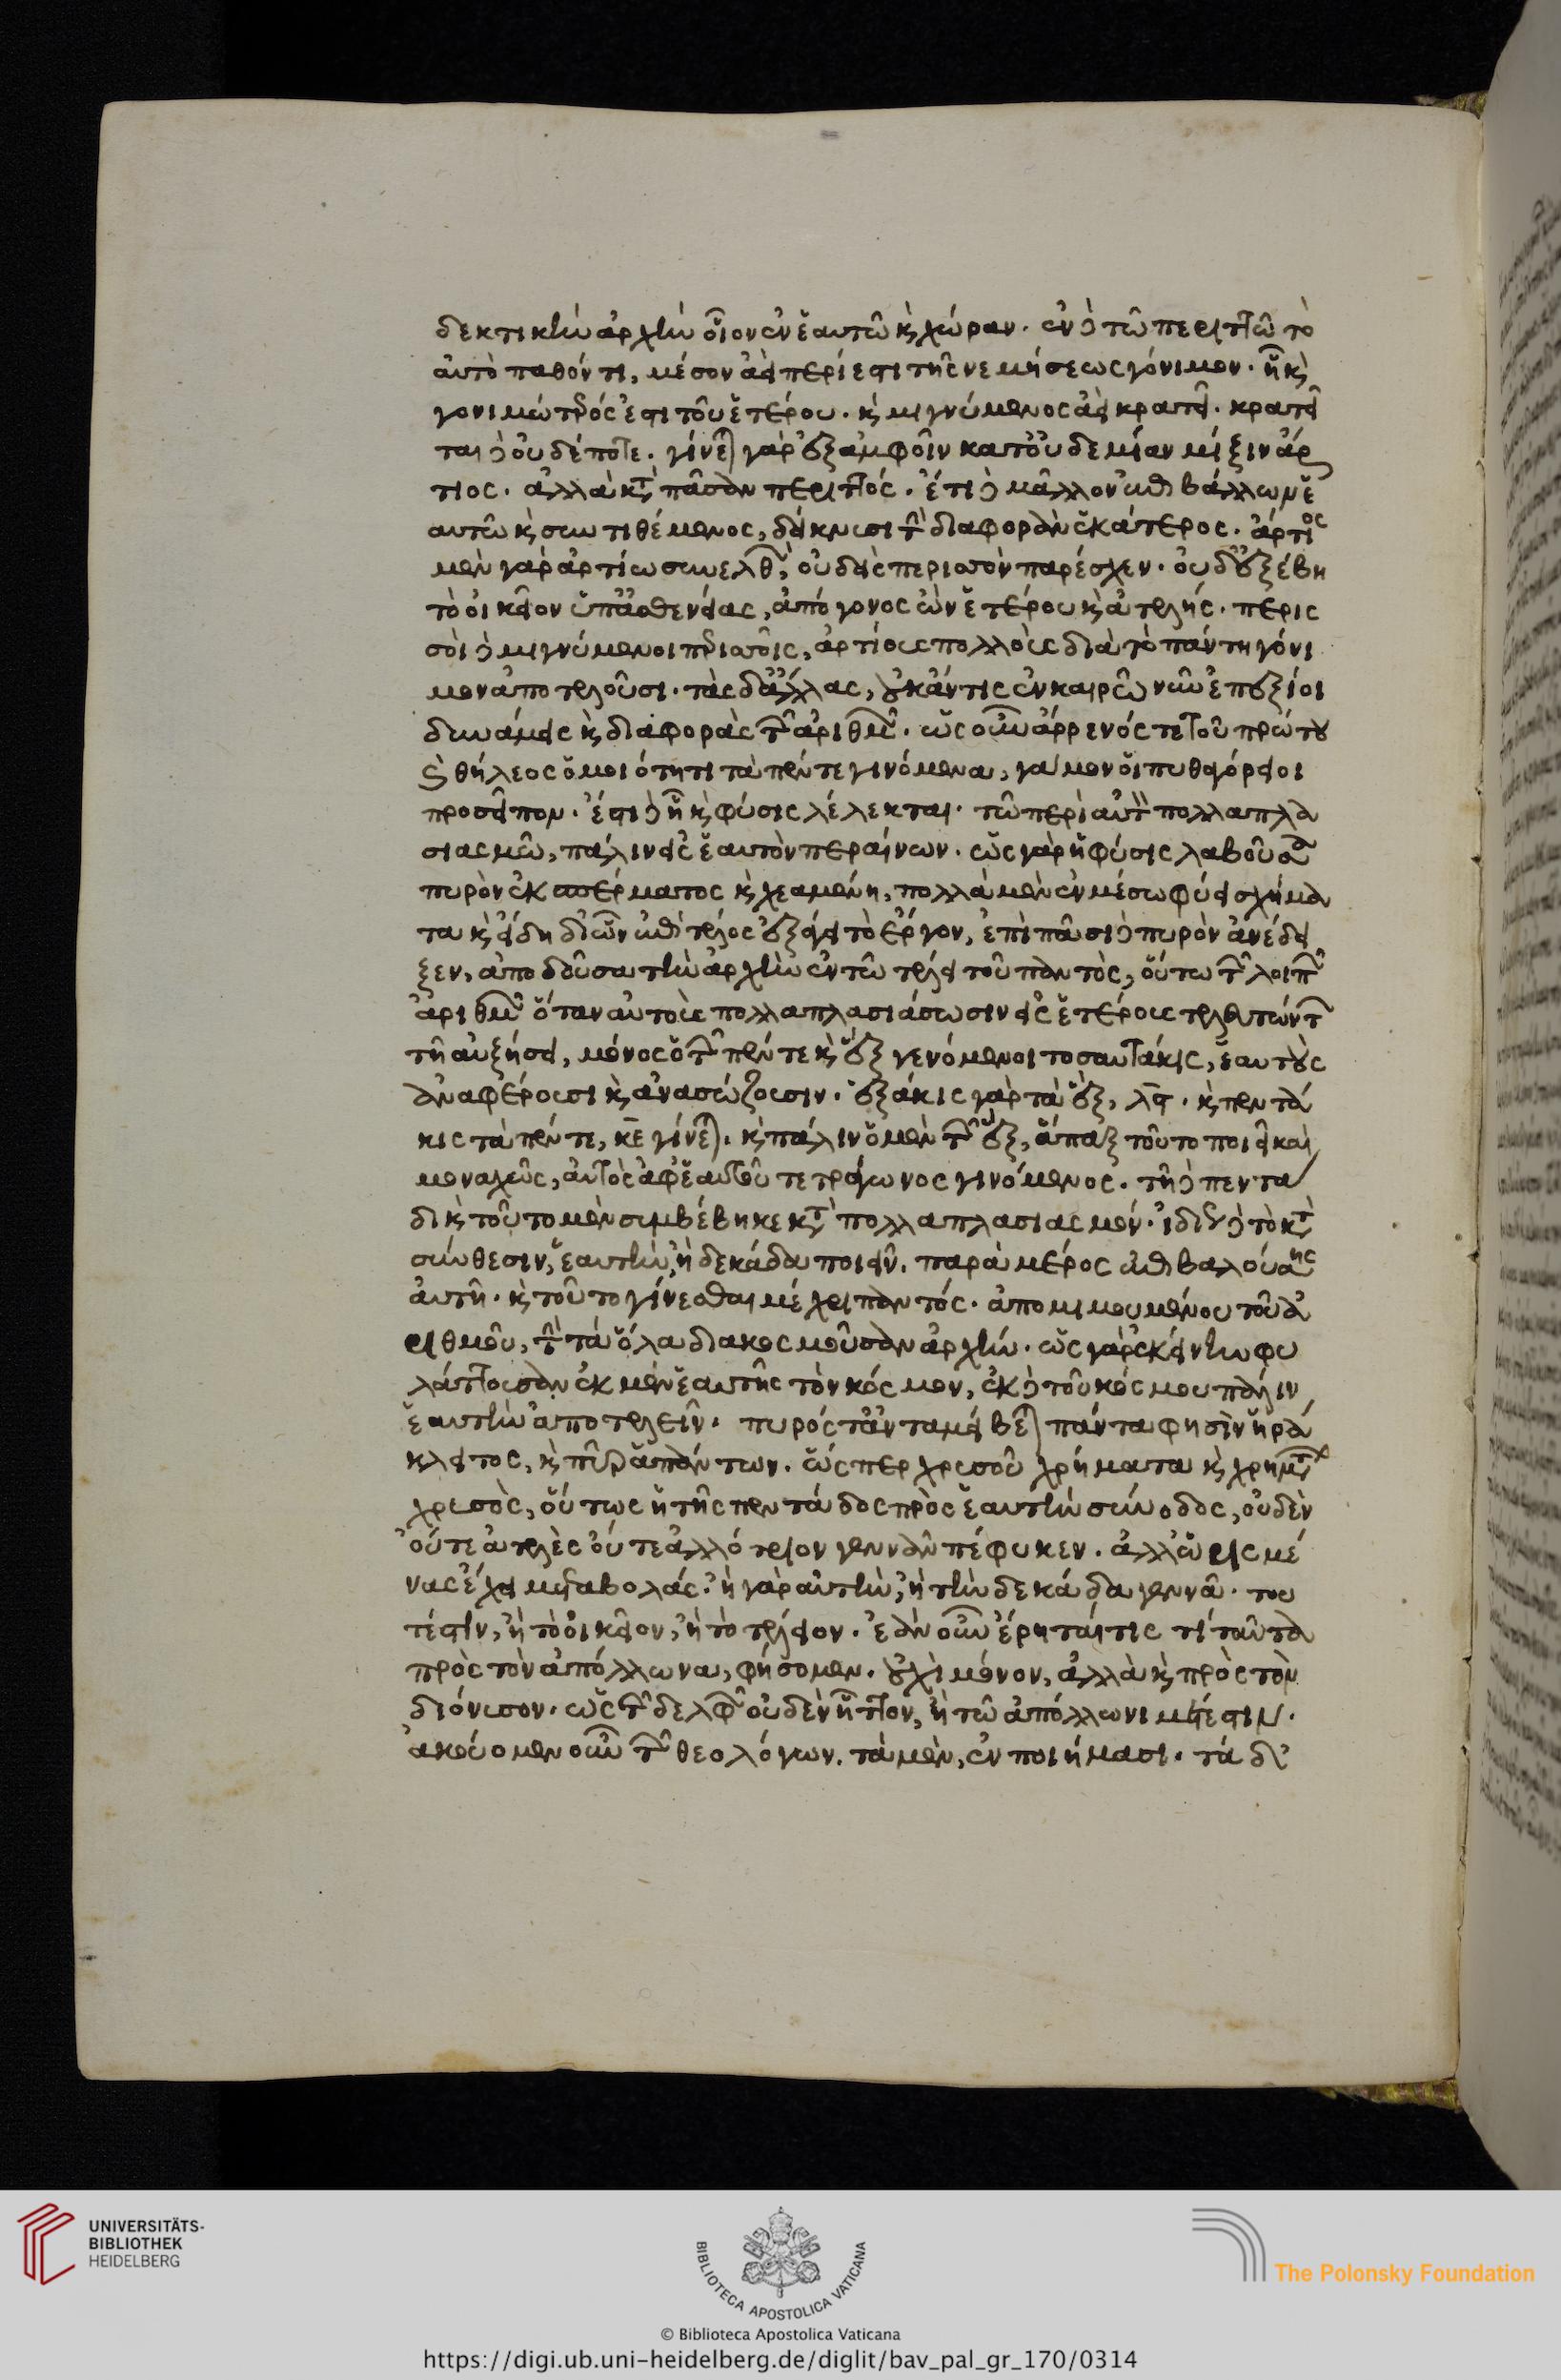 δεκτικὴν ἀρχὴν οἷον ἐν ἑαυτῶ κ χώραν. ἐν δὲ τῶ περιττῶ τὸ
αὐτὸ παθόντι, μέσον ἀεὶ περίεστι τῆς νεμήσεως γόνιμον. ἧ κ
γονιμώτερός ἐστι τοῦ ἑτέρου. κ μιγνύμενος ἀεὶ κρατεῖ. κρατεῖ
ται δὲ οὐδέποτε. γίνεται γὰρ ἐξ ἀμφοῖν κατ' οὐδεμίαν μίξιν ἄρ
τιος. ἀλλὰ κατὰ πᾶσαν περιττός. ἔτι δὲ μᾶλλον ἐπιβάλλων ἑ
αυτῶ κ συντιθέμενος, δείκνυσι τὴν διαφορὰν ἑκάτερος. ἄρτιος
μὲν γὰρ ἀρτίω συνελθὼν, οὐδεὶς περισσὸν παρέσχεν. οὐδ' ἐξέβη
τὸ οἰκεῖον ὑπ' ἀσθενείας, ἀπόγονος ὢν ἑτέρου κ ἀτελής. περις
σοὶ δὲ μιγνύμενοι περισσοῖς, ἀρτίους πολλοὺς διὰ τὸ πάντη γόνι
μον ἀποτελοῦσι. τὰς δ' ἄλλας, οὐκ ἄν τις ἐν καιρῶ νῦν ἐπεξίοι
δυνάμεις κ διαφορὰς τῶν ἀριθμῶν. ὡς οὖν ἄρρενός τε τοῦ πρώτου
κ θήλεος ὁμοιότητι τὰ πέντε γινόμενα, γάμον οἱ πυθαγόρειοι
προσεῖπον. ἔστι δὲ ἧ κ φύσις λέλεκται. τῶ περὶ αὐτὸν πολλαπλα
σιασμῶ, πάλιν εἰς ἑαυτὸν περαίνων. ὡς γὰρ ἡ φύσις λαβοῦσα
πυρὸν ἐκ σπέρματος κ χεαμένη, πολλὰ μὲν ἐν μέσω φύει σχήμα
τα κ εἴδη δι' ὧν ἐπὶ τέλος ἐξάγει τὸ ἔργον, ἐπὶ πᾶσι δὲ πυρὸν ἀνέδει
ξεν, ἀποδοῦσα τὴν ἀρχὴν ἐν τῶ τέλει τοῦ παντὸς, οὕτω τῶν λοιπῶν
ἀριθμῶν ὅταν αὑτοὺς πολλαπλασιάσωσιν εἰς ἑτέρους τελευτώντων
τῆ αὐξήσει, μόνος ὁ τῶν πέντε κ ἓξ γενόμενοι τοσαυτάκις, ἑαυτοὺς
ἀναφέρουσι κ ἀνασώζουσιν. ἑξάκις γὰρ τὰ ἓξ, λϛ. κ πεντά
κις τὰ πέντε, κε γίνεται. κ πάλιν ὁ μὲν τῶν ἓξ, ἅπαξ τοῦτο ποιεῖ καὶ
μοναχῶς, αὐτὸς ἀφ' ἑαυτοῦ τετράγωνος γινόμενος. τῆ δὲ πεντα
δι κ τοῦτο μὲν συμβέβηκε κατὰ πολλαπλασιασμόν. ἰδίως δὲ τὸ κατὰ
σύνθεσιν, ἑαυτὴν, ἢ δεκάδα ποιεῖν. παρὰ μέρος ἐπιβαλούσης
αὐτῆ. κ τοῦτο γίνεσθαι μέχρι παντός. ἀπομιμουμένου τοῦ ἀ
ριθμοῦ, τὴν τὰ ὅλα διακοσμοῦσαν ἀρχήν. ὡς γὰρ ἐκείνην φυ
λάττουσαν ἐκ μὲν ἑαυτῆς τὸν κόσμον, ἐκ δὲ τοῦ κόσμου πάλιν
ἑαυτὴν ἀποτελεῖν. πυρός τ' ἀνταμείβεται πάντα φησὶν ἡρά
κλειτος, κ πῦρ ἁπάντων. ὥσπερ χρυσοῦ χρήματα κ χρημάτων
χρυσὸς, οὕτως ἡ τῆς πεντάδος πρὸς ἑαυτὴν σύνοδος, οὐδὲν
οὔτε ἀτελὲς οὔτε ἀλλότριον γεννᾶν πέφυκεν. ἀλλ' ὡρισμέ
νας ἔχει μεταβολάς. ἢ γὰρ αὑτὴν, ἢ τὴν δεκάδα γεννᾶ. του
τέστιν, ἢ τὸ οἰκεῖον, ἢ τὸ τέλειον. ἐὰν οὖν ἔρηταί τις τί ταῦτα
πρὸς τὸν ἀπόλλωνα, φήσομεν. οὐχὶ μόνον, ἀλλὰ κ πρὸς τὸν
διόνυσον. ὡς τῶν δελφῶν οὐδὲν ἧττον, ἢ τῶ ἀπόλλωνι μέτεστιν.
ἀκούομεν οὖν τῶν θεολόγων. τὰ μὲν, ἐν ποιήμασι. τὰ δ'
UNIVERSITÄTS-
BIBLIOTHEK
HEIDELBERG
BIBLIOTECA APOSTOLICA VATICANA
© Biblioteca Apostolica Vaticana
The Polonsky Foundation
https://digi.ub.uni-heidelberg.de/diglit/bav_pal_gr_170/0314